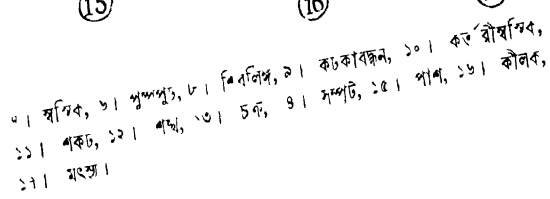 (15) (16)
৭। স্বস্তিক, ৮। পুষ্পপুট, ৮। শিবলিঙ্গ, ৯। কটকাবন্ধন, ১০। কর্তরীস্বস্তিক,
১১। শকট, ১২। শঙ্খ, ১৩। চক্র, ৪। সম্পুট, ১৫। পাশ, ১৬। কীলক,
১৭। মৎস্য।